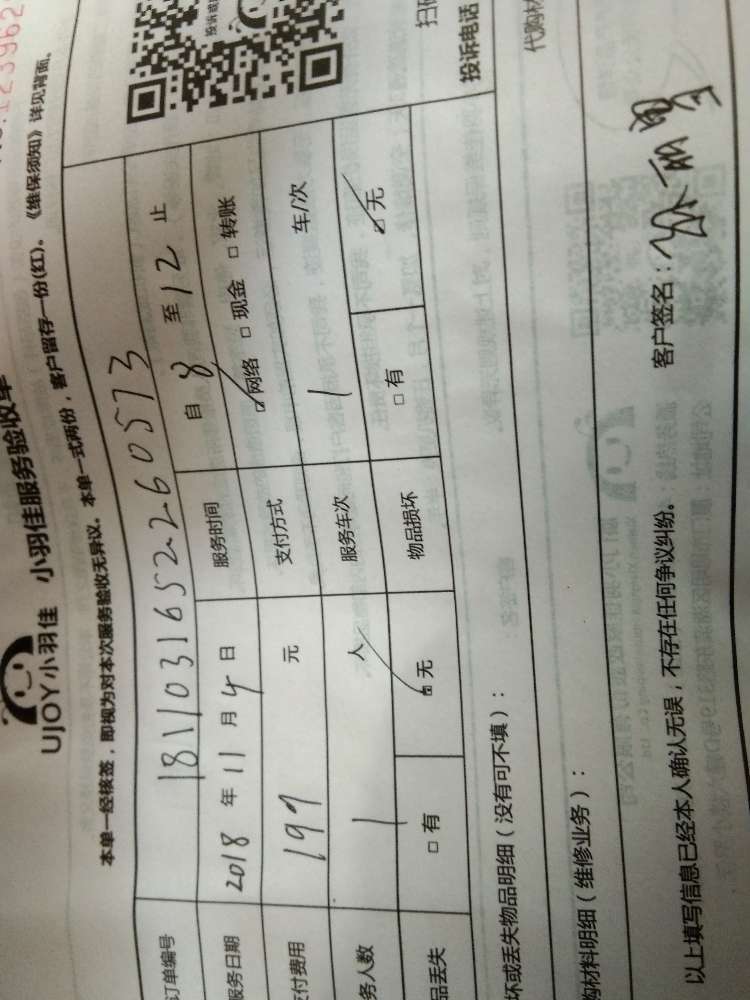 UJOY小羽佳 小羽佳服务验收单
本单一经核签，即视为对本次服务验收无异议。本单一式两份，客户留存一份(红)。《维保须知》详见背面。
订单编号 181103165226 0573
服务日期 2018 年 11 月 4 日 服务时间 自 8 至 12 止
付费用 199 元 支付方式 ☑网络 □现金 □转账
务人数 1 人 服务车次 1 车/次
品丢失 □有 ☑无 物品损坏 □有 ☑无
投诉电话
坏或丢失物品明细（没有可不填）：
代购材
购材料明细（维修业务）：
以上填写信息已经本人确认无误，不存在任何争议纠纷。 客户签名：